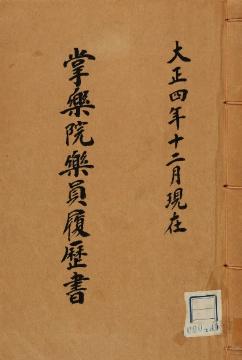 大正四年十二月現在
掌樂院樂員履歷書